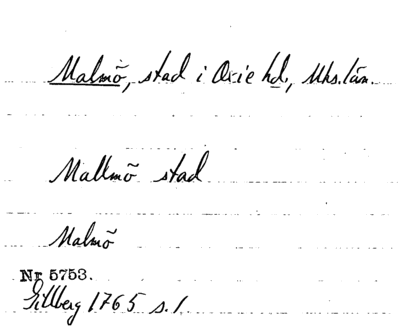 Malmö, stad i Oxie hd., Mhs. län.
Mallmö stad
Malmö
Nr 5753.
Gillberg 1765 s. 1